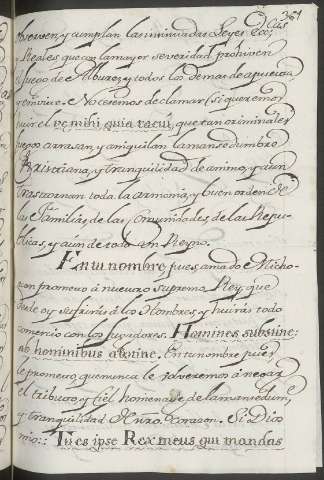 361
observen, y cumplan las insinuadas Leyes Ecc.
y Reales que con la mayor severidad prohiven
el juego de Albures, y todos los demas de apuesta
y embite. No cesemos de clamar (si queremos
huir el væ mihi quia tacui, que tan criminales
juegos arrasan, y aniquilan la mansedumbre
Xristiana, y tranquilidad de animo, y aun
trastornan toda la armonia, y buen orden de
las Familias, de las Comunidades, de las Repu-
blicas, y aun de todo un Reyno.
En tu nombre pues, amado Micho-
can prometo á nuestro supremo Rey, que
y sufrirás á los Hombres, y huirás todo
comercio con los jugadores. Homines substine:
ab hominibus abstine. En tu nombre pues
le prometo, que nunca le volveremos á negar
el tributo, y fiel homenage de la mansedumbre,
y tranquilidad de nro. corazon. Si Dios
mio:: Tu es ipse Rex meus qui mandas